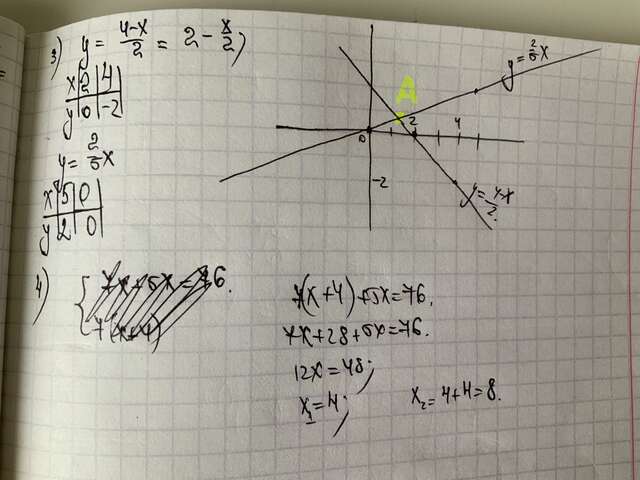 3) y = (4-x)/2 = 2 - x/2;
x | 2 | 4
y | 0 | -2
y = 2/5 x
x | 5 | 0
y | 2 | 0
y = 2/5 x
A
0 2 4
-2
y = (4-x)/2
4)
7(x+4)+5x=76.
7x+28+5x=76.
12x=48;
x₁=4; x₂=4+4=8.